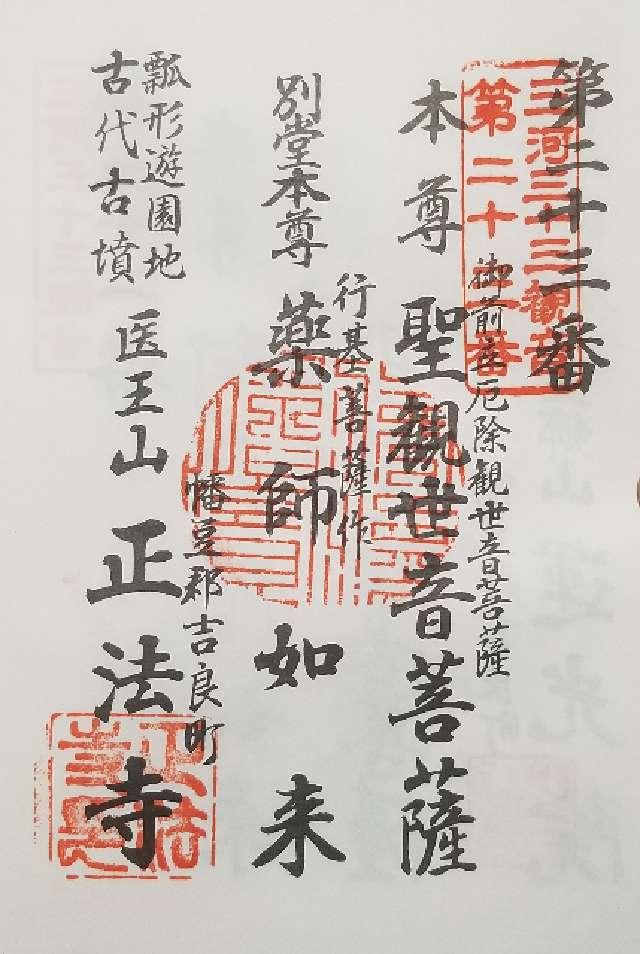 第二十三番
三河三十三観音
第二十三番
御前立厄除観世音菩薩
本尊 聖観世音菩薩
行基菩薩作
別堂本尊 薬師如来
幡豆郡吉良町
瓢形遊園地
古代古墳
医王山 正法寺